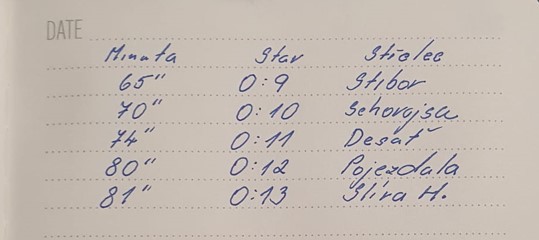 DATE
Minuta Stav Střelec
65" 0:9 Stibor
70" 0:10 Schovajsa
74" 0:11 Desať
80" 0:12 Pojezdala
81" 0:13 Slíva M.